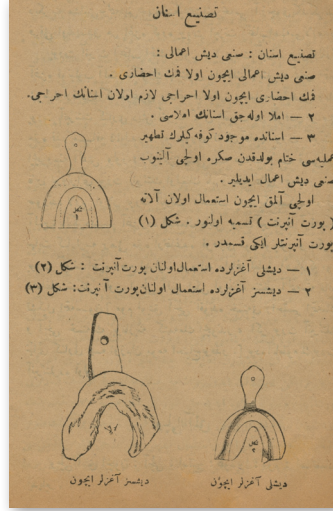 تصنیع اسنان
تصنیع اسنان : صنعی دیش اعمالی :
صنعی دیش اعمالی ایچون اولا فمك احضاری .
فمك احضاری ایچون اولا احراجی لازم اولان اسنانك احراجی.
٢ — املا اوله‌جق اسنانك املاسی .
٣ — اسنانده موجود كوفه‌كیلرك تطهیر
عملیه‌سی ختام بولدقدن صكره اولچی آلینوب
صنعی دیش اعمال ایدیلیر .
اولچی آلمق ایچون استعمال اولان آلاته
( پورت آنپرنت ) تسمیه اولنور . شكل (١)
پورت آنپرنتلر ایكی قسمدر .
١ — دیشلی آغزلرده استعمال اولنان پورت آنپرنت : شكل (٢)
٢ — دیشسز آغزلرده استعمال اولنان پورت آنپرنت: شكل (٣)
دیشسز آغزلر ایچون
دیشلی آغزلر ایچون